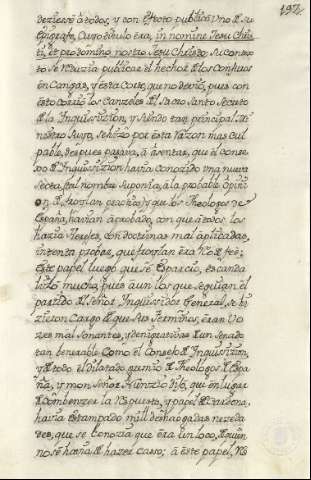 197
deziesse á todos, y con efecto publicó uno de su
Epigrafe, cuyo titulo era, in nomine Jesu Chris
ti, et pro domino nostro Jesu Christo, su contex
to se reducia publicar el hecho de los confusos
en Cangas, y esta Corte, que no devió, pues con
esto corrió los Canzeles del Sacro Santo Secreto
de la Inquisizion, y siendo tan principal Mi
nistro suyo, se hizo por esta razon mas cul
pable, despues pasava, á asentar, que el conse
xo de Inquisizion havia conozido una nueva
secta, ó tal nombre suponia, á la probable opini
on
España, havian aprobado, con que á todos los
hazia Jereges, con doctrinas mal aplicadas,
intenta probar, que herian era de feé;
Este papel luego que se esparció, escanda
lizó mucho, pues aun los que seguian el
partido del señor Inquisidor General, se hi
zieron Cargo de que sus terminos, eran vo
zes mal sonantes, y denigrativas de un senado
tan benerable como el Consejo de Inquisizion,
y de todo el dilatado gremio de Theologos de Espa
ña, y monseñor Nunzio dijo, que en lugar
de conbenzer la respuesta, y papel de Cardona,
havia estampado mil deshaogadas nezeda
des, que se conozia que era un loco, de quien
no se havia de hazer caso; á este papel, no